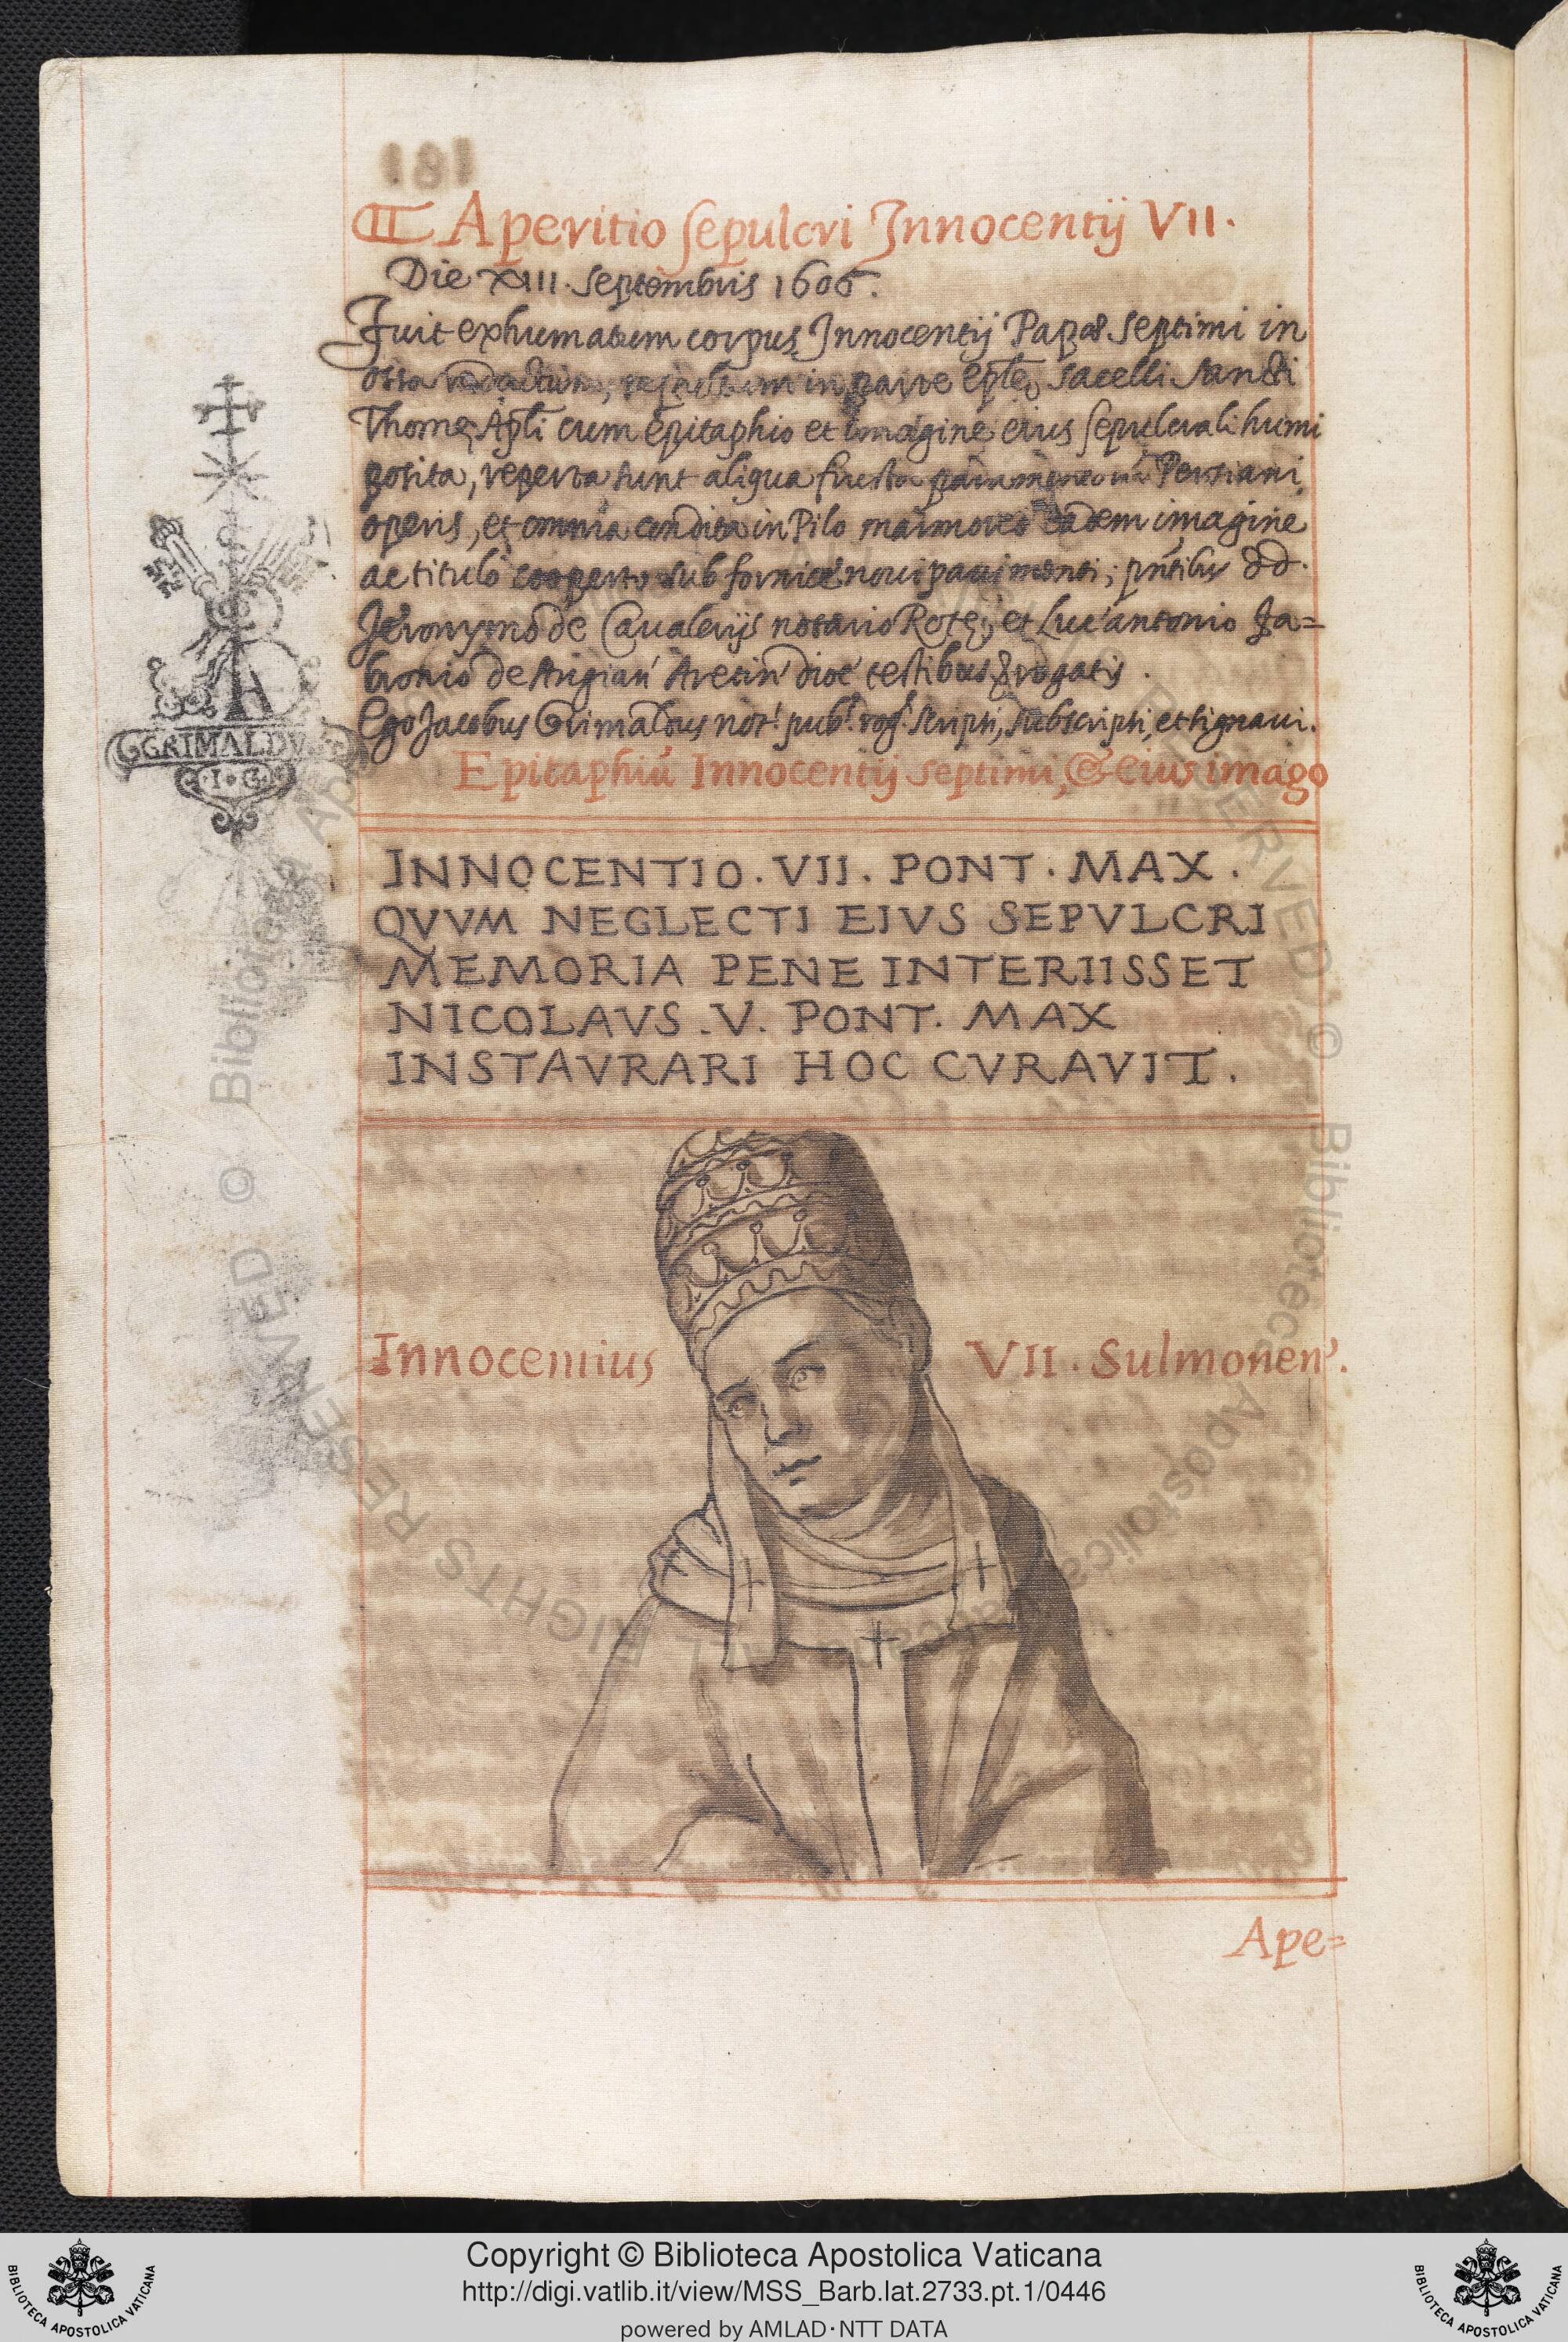 Aperitio sepulcri Innocentij VII.
Die XIII. septembris 1606.
Fuit exhumatum corpus Innocentij Papæ septimi in
ossa in parte sacelli sancti
Thomę Apli cum epitaphio et imagine eius sepulcrali humi
posita, reperta sunt aliqua frusta Persiani
operis, et omnia condita in Pilo marmoreo eadem imagine
ac titulo cooperto sub fornice noui pauimenti; pntibus dd.
Jeronymo de Caualerijs notario Rotę, et Luc'antonio Fa=
bronio de Aretin' dioc' testibus rogatis.
Ego Jacobus Grimaldus not. pub. rog. scripsi, subscripsi, et signaui.
GRIMALDVS
I·G
Epitaphiū Innocentij septimi, & eius imago
INNOCENTIO. VII. PONT. MAX.
QVVM NEGLECTI EIVS SEPVLCRI
MEMORIA PENE INTERIISSET
NICOLAVS. V. PONT. MAX
INSTAVRARI HOC CVRAVIT.
Innocentius VII. Sulmonen'.
Ape=
Copyright © Biblioteca Apostolica Vaticana
http://digi.vatlib.it/view/MSS_Barb.lat.2733.pt.1/0446
powered by AMLAD·NTT DATA
BIBLIOTECA APOSTOLICA VATICANA
BIBLIOTECA APOSTOLICA VATICANA